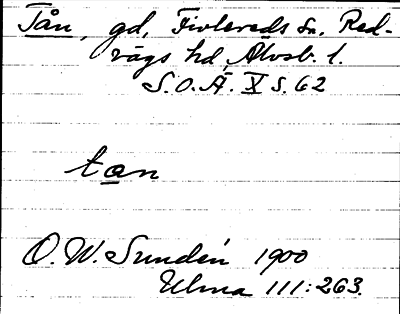 Tån, gd, Fivlereds sn. Red-
vägs hd, Älvsb. l.
S.O.Ä. X s. 62
tan
O. W. Sundén 1900
Ulma 111:263.